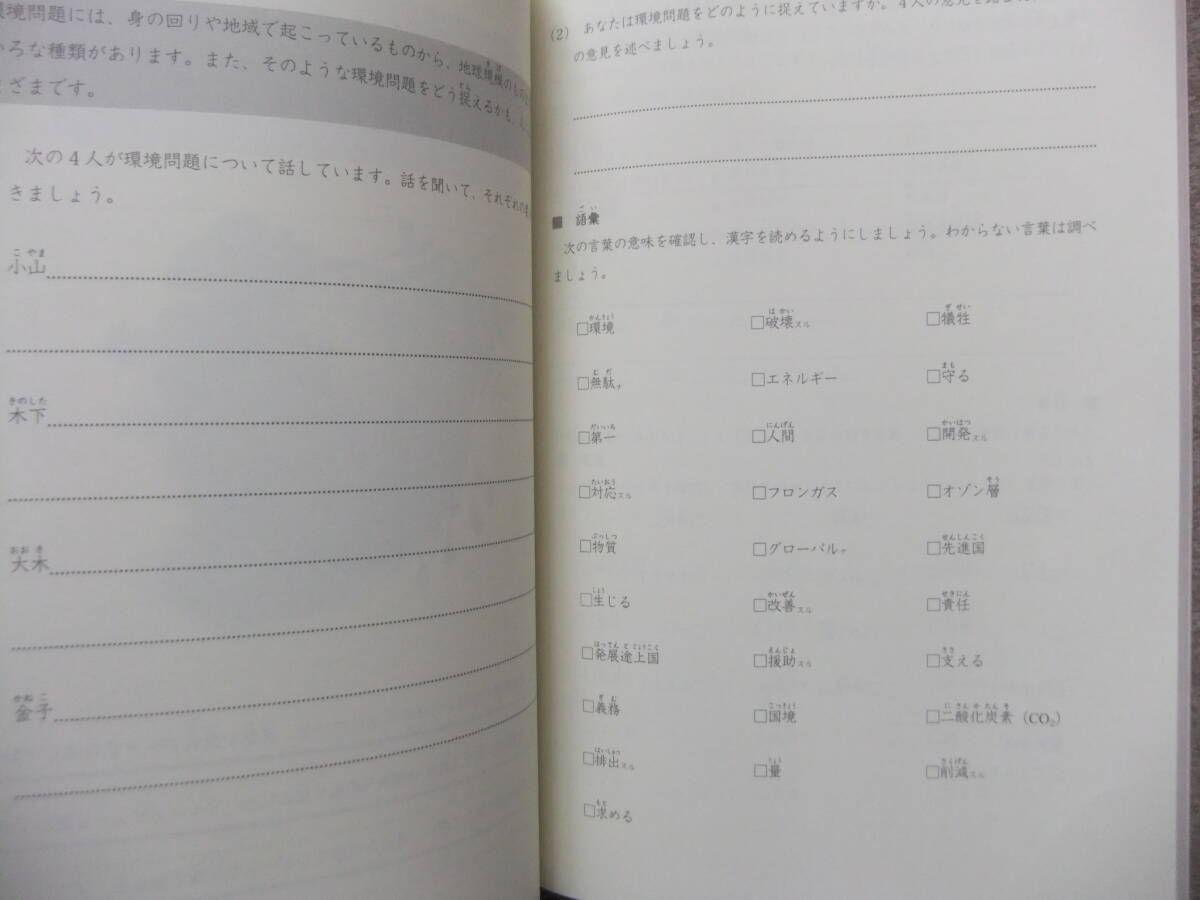 環境問題には、身の回りや地域で起こっているものから、地球規模のものま
ろな種類があります。また、そのような環境問題をどう捉えるかも、
ざまです。
次の4人が環境問題について話しています。話を聞いて、それぞれの
きましょう。
小山
木下
大木
金子
(2) あなたは環境問題をどのように捉えていますか。4人の意見を
の意見を述べましょう。
■ 語彙
次の言葉の意味を確認し、漢字を読めるようにしましょう。わからない言葉は調べ
ましょう。
□環境 □破壊スル □犠牲
□無駄ナ □エネルギー □守る
□第一 □人間 □開発スル
□対応スル □フロンガス □オゾン層
□物質 □グローバルナ □先進国
□生じる □改善スル □責任
□発展途上国 □援助スル □支える
□義務 □国境 □二酸化炭素（CO₂）
□排出スル □量 □削減スル
□求める